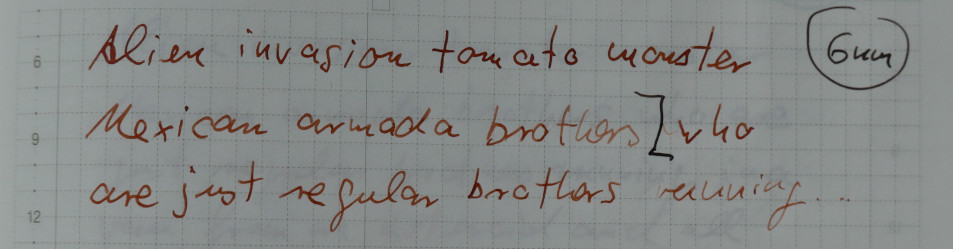 Alien invasion tomato monster
6mm
Mexican armada brothers] who
are just regular brothers running...
6
9
12